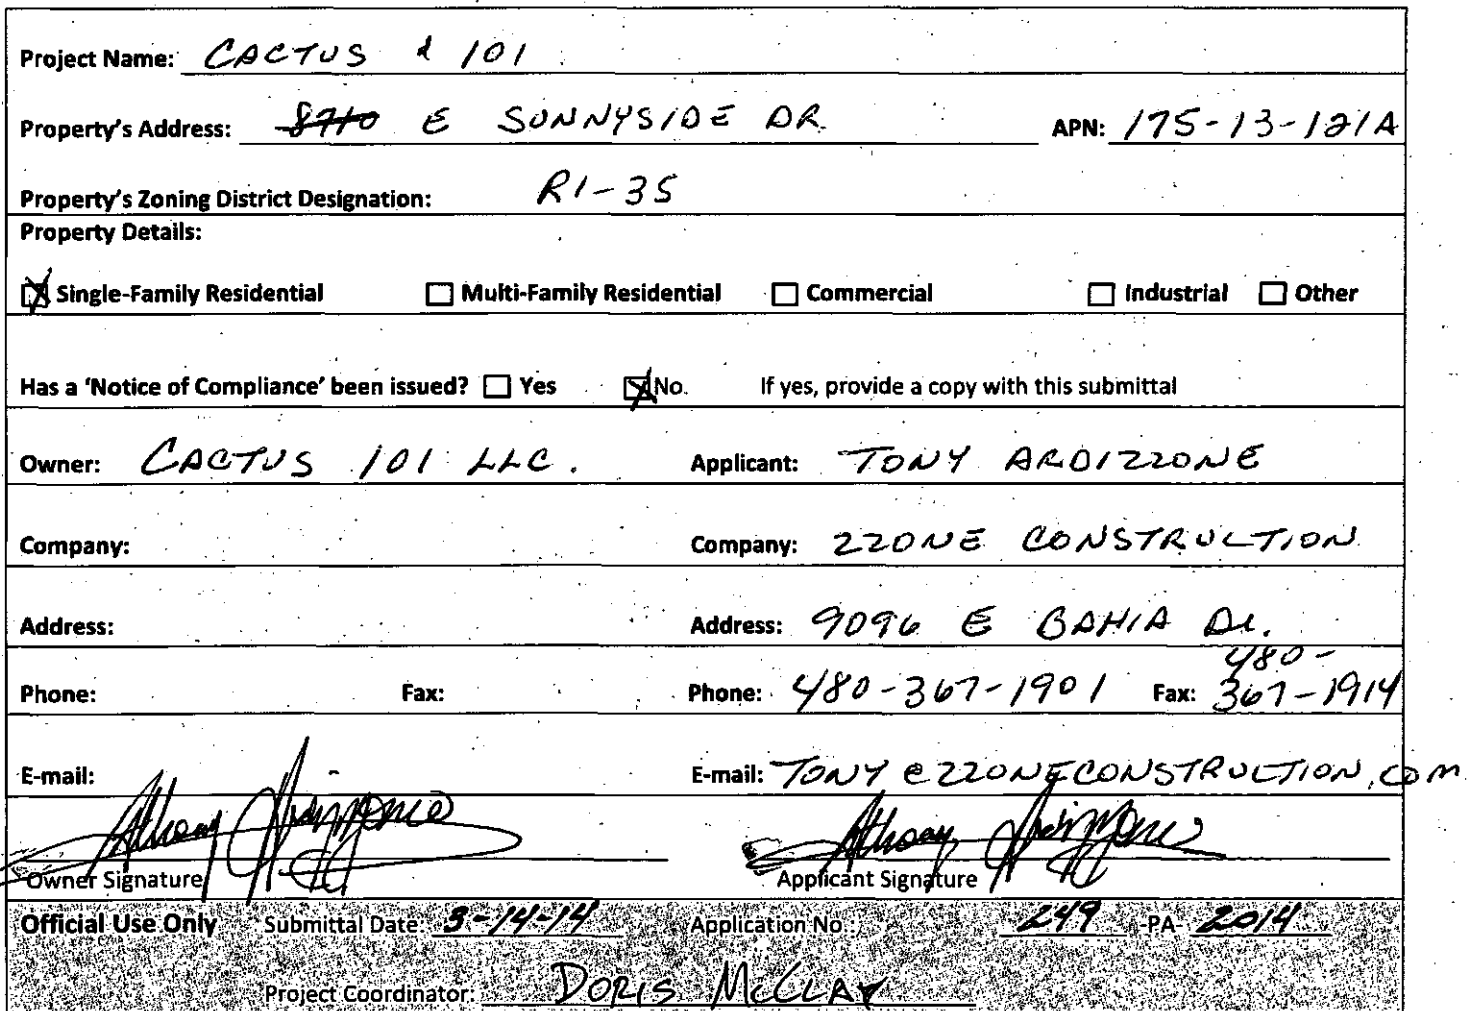 Project Name: CACTUS & 101
Property's Address: 8710 E SUNNYSIDE DR. APN: 175-13-121A
Property's Zoning District Designation: R1-35
Property Details:
Single-Family Residential Multi-Family Residential Commercial Industrial Other
Has a 'Notice of Compliance' been issued? Yes No. If yes, provide a copy with this submittal
Owner: CACTUS 101 LLC. Applicant: TONY ARDIZZONE
Company: Company: ZZONE CONSTRUCTION
Address: Address: 9096 E BAHIA DR.
Phone: Fax: Phone: 480-367-1901 Fax: 480-367-1914
E-mail: E-mail: TONY@ZZONECONSTRUCTION.COM
Anthony Ardizzone Anthony Ardizzone
Owner Signature Applicant Signature
Official Use Only Submittal Date: 3-14-14 Application No.: 249 -PA- 2014
Project Coordinator: DORIS McCLAY